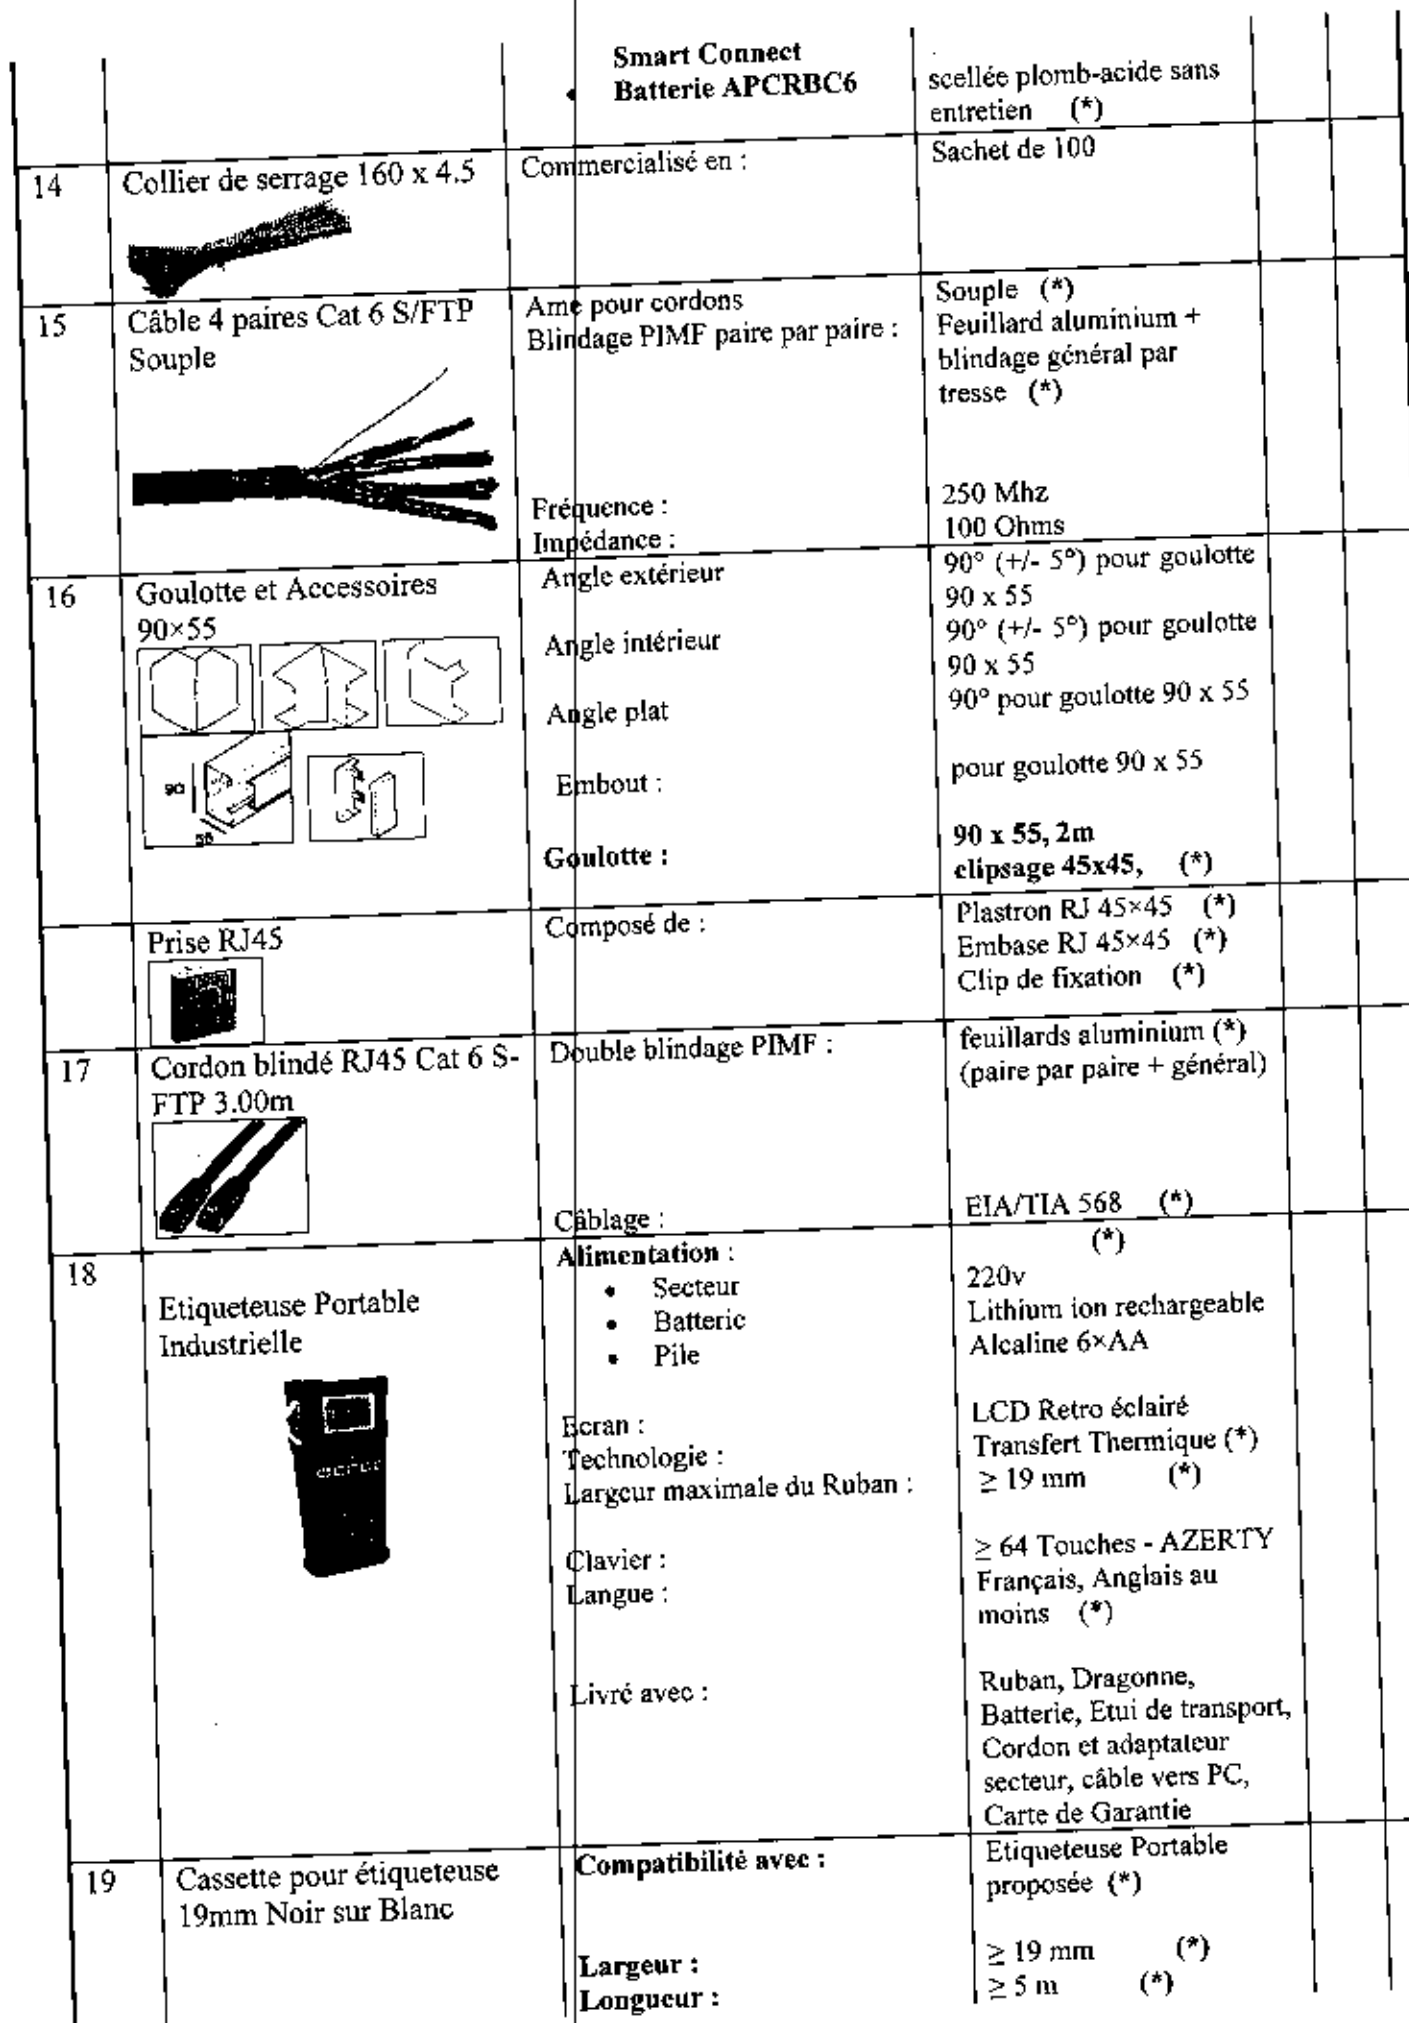 Smart Connect
• Batterie APCRBC6
scellée plomb-acide sans
entretien (*)
14
Collier de serrage 160 x 4.5
Commercialisé en :
Sachet de 100
15
Câble 4 paires Cat 6 S/FTP
Souple
Ame pour cordons
Blindage PIMF paire par paire :
Fréquence :
Impédance :
Souple (*)
Feuillard aluminium +
blindage général par
tresse (*)
250 Mhz
100 Ohms
16
Goulotte et Accessoires
90×55
90
55
Angle extérieur
Angle intérieur
Angle plat
Embout :
Goulotte :
90° (+/- 5°) pour goulotte
90 x 55
90° (+/- 5°) pour goulotte
90 x 55
90° pour goulotte 90 x 55
pour goulotte 90 x 55
90 x 55, 2m
clipsage 45x45, (*)
Prise RJ45
Composé de :
Plastron RJ 45×45 (*)
Embase RJ 45×45 (*)
Clip de fixation (*)
17
Cordon blindé RJ45 Cat 6 S-
FTP 3.00m
Double blindage PIMF :
Câblage :
feuillards aluminium (*)
(paire par paire + général)
EIA/TIA 568 (*)
18
Etiqueteuse Portable
Industrielle
Alimentation :
• Secteur
• Batterie
• Pile
Ecran :
Technologie :
Largeur maximale du Ruban :
Clavier :
Langue :
Livré avec :
(*)
220v
Lithium ion rechargeable
Alcaline 6×AA
LCD Retro éclairé
Transfert Thermique (*)
≥ 19 mm (*)
≥ 64 Touches - AZERTY
Français, Anglais au
moins (*)
Ruban, Dragonne,
Batterie, Etui de transport,
Cordon et adaptateur
secteur, câble vers PC,
Carte de Garantie
19
Cassette pour étiqueteuse
19mm Noir sur Blanc
Compatibilité avec :
Largeur :
Longueur :
Etiqueteuse Portable
proposée (*)
≥ 19 mm (*)
≥ 5 m (*)